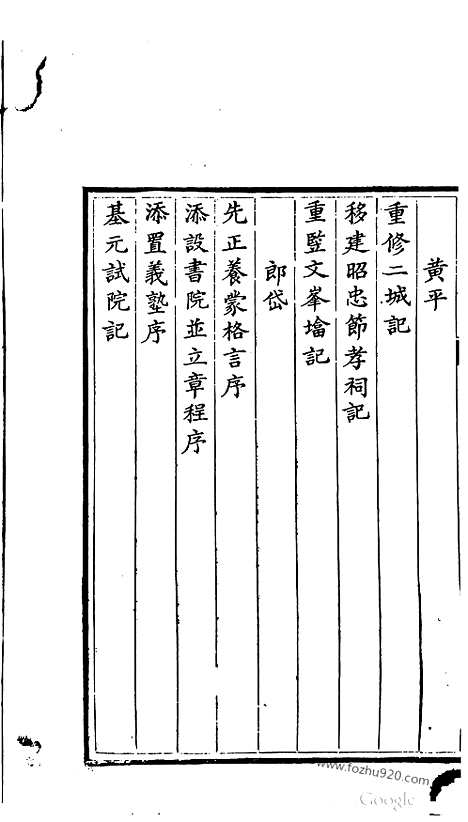 黄平
重修二城記
移建昭忠節孝祠記
重監文峯㙮記
郎岱
先正養蒙格言序
添設書院並立章程序
添置義塾序
基元試院記
www.fozhu920.com
Google